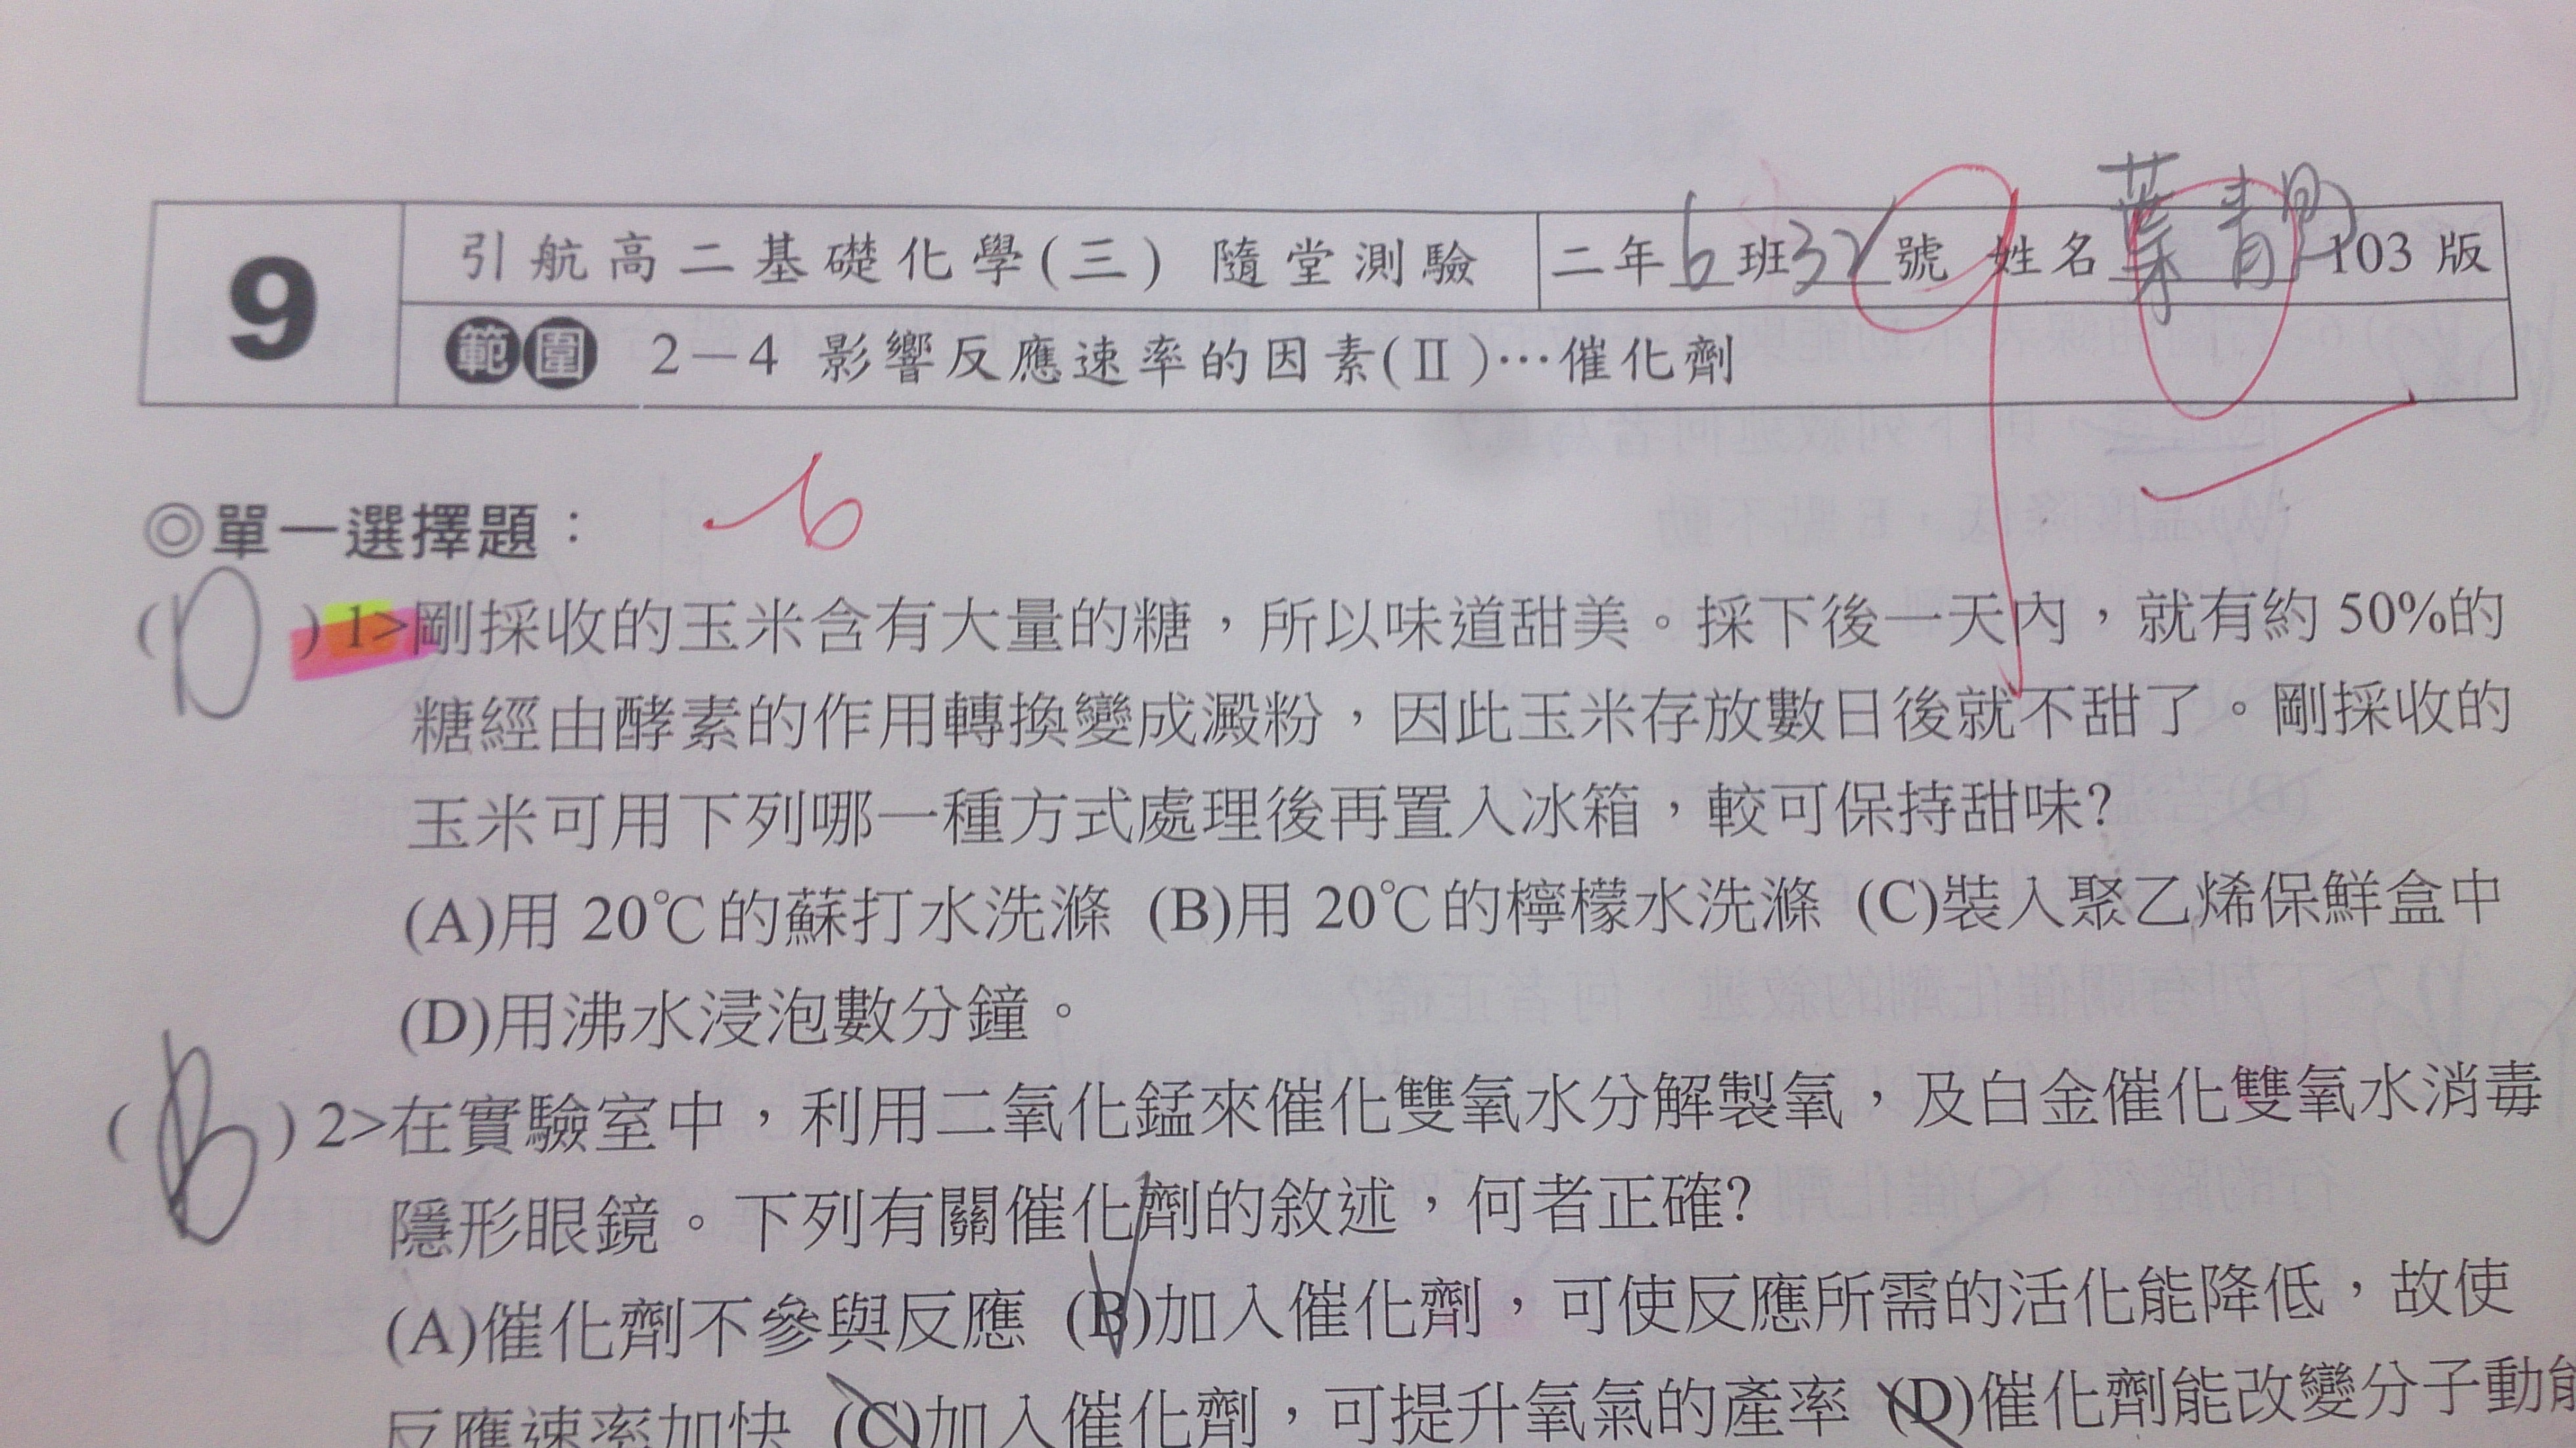 9
引航高二基礎化學(三) 隨堂測驗
二年6班32號 姓名葉青 103版
範圍 2－4 影響反應速率的因素(Ⅱ)…催化劑
90
-6
◎單一選擇題：
(D)1>剛採收的玉米含有大量的糖，所以味道甜美。採下後一天內，就有約50%的
糖經由酵素的作用轉換變成澱粉，因此玉米存放數日後就不甜了。剛採收的
玉米可用下列哪一種方式處理後再置入冰箱，較可保持甜味?
(A)用20℃的蘇打水洗滌 (B)用20℃的檸檬水洗滌 (C)裝入聚乙烯保鮮盒中
(D)用沸水浸泡數分鐘。
(B)2>在實驗室中，利用二氧化錳來催化雙氧水分解製氧，及白金催化雙氧水消毒
隱形眼鏡。下列有關催化劑的敘述，何者正確?
(A)催化劑不參與反應 (B)加入催化劑，可使反應所需的活化能降低，故使
反應速率加快 (C)加入催化劑，可提升氧氣的產率 (D)催化劑能改變分子動能